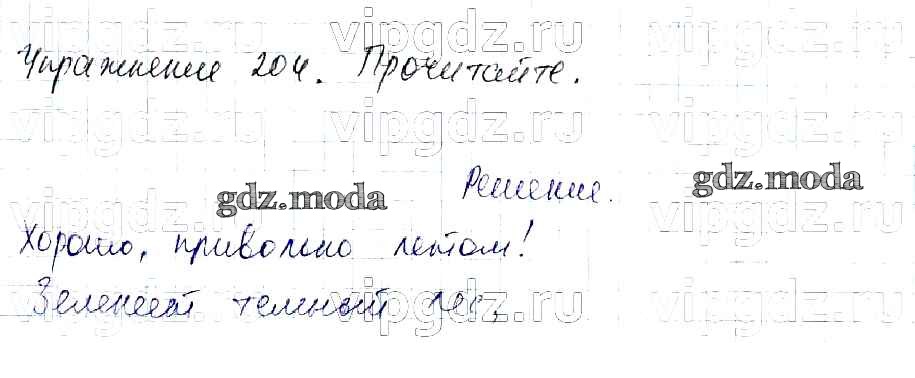 vipgdz.ru vipgdz.ru vipgdz.ru
Упражнение 204. Прочитайте.
vipgdz.ru vipgdz.ru vipgdz.ru
Решение.
gdz.moda gdz.moda
vipgdz.ru vipgdz.ru vipgdz.ru
Хорошо, привольно летом!
Зеленеет темный лес,
vipgdz.ru vipgdz.ru vipgdz.ru